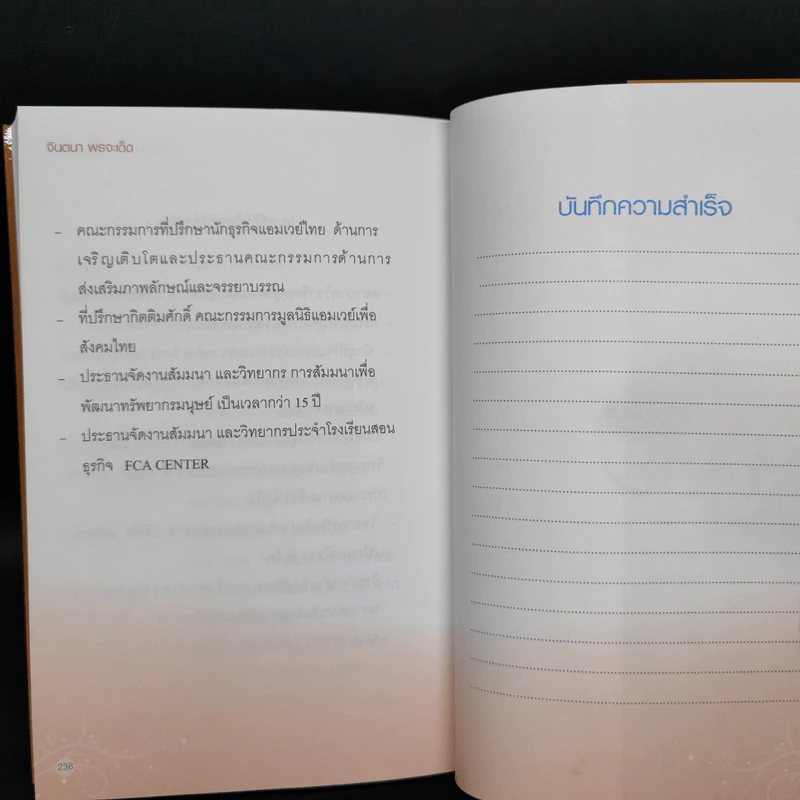 จินตนา พรจะเด็ด
– คณะกรรมการที่ปรึกษานักธุรกิจแอมเวย์ไทย ด้านการ
เจริญเติบโตและประธานคณะกรรมการด้านการ
ส่งเสริมภาพลักษณ์และจรรยาบรรณ
– ที่ปรึกษากิตติมศักดิ์ คณะกรรมการมูลนิธิแอมเวย์เพื่อ
สังคมไทย
– ประธานจัดงานสัมมนา และวิทยากร การสัมมนาเพื่อ
พัฒนาทรัพยากรมนุษย์ เป็นเวลากว่า 15 ปี
– ประธานจัดงานสัมมนา และวิทยากรประจำโรงเรียนสอน
ธุรกิจ FCA CENTER
238
บันทึกความสำเร็จ